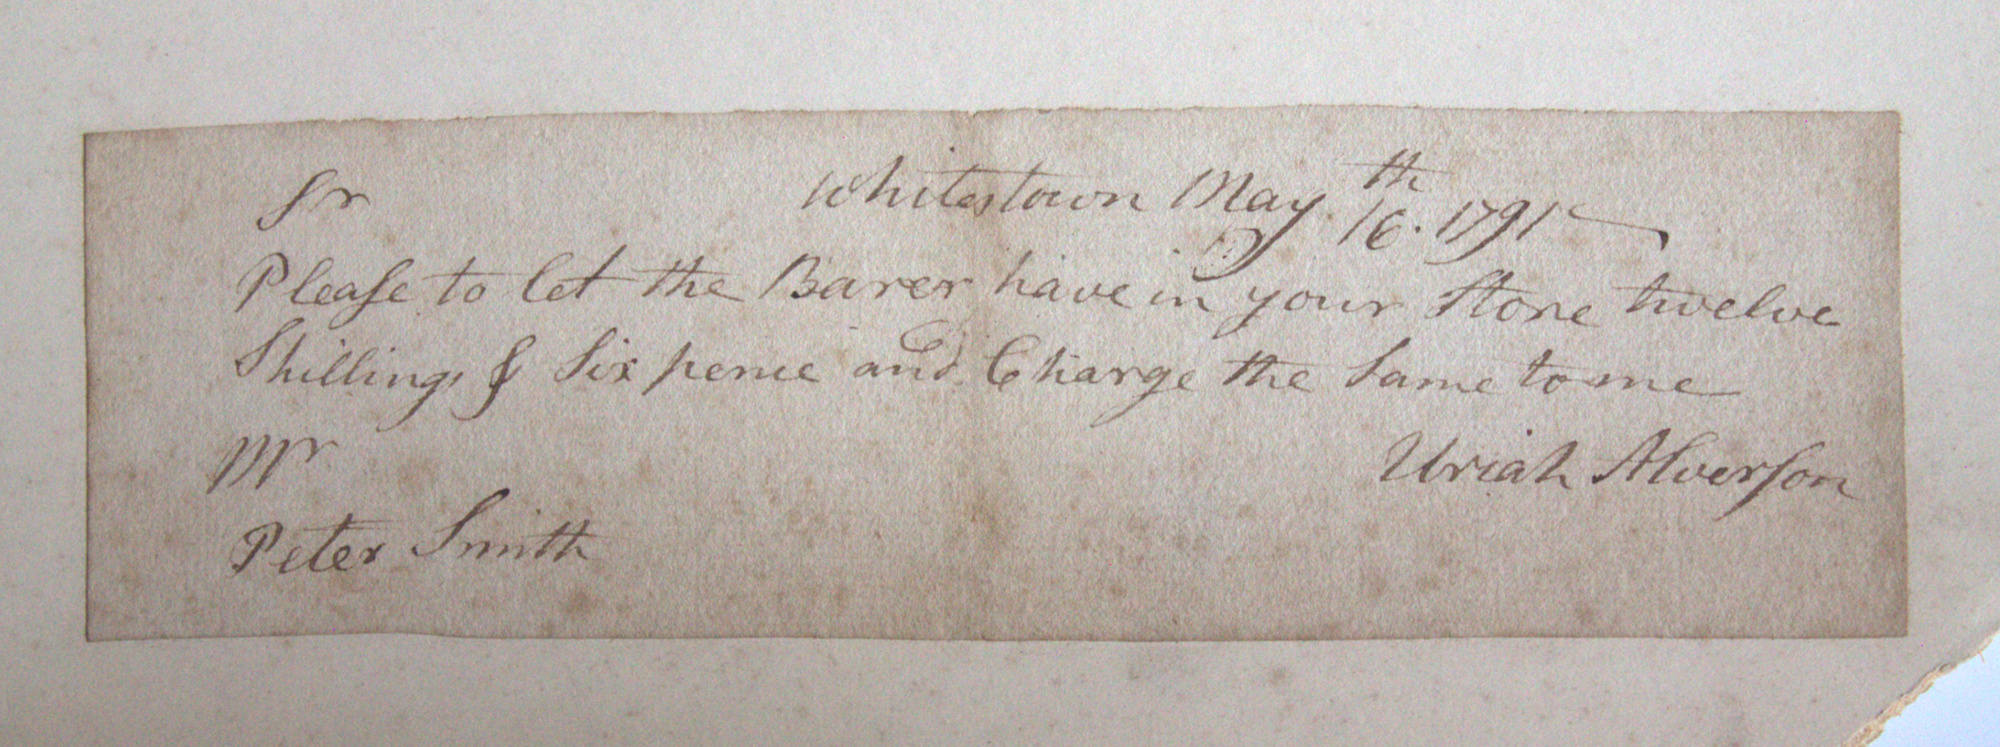 Sr Whitestown May 16th. 1791
Please to let the Barer have in your Store twelve
Shillings & Six pence and Charge the Same to me
Mr Uriah Alverson
Peter Smith